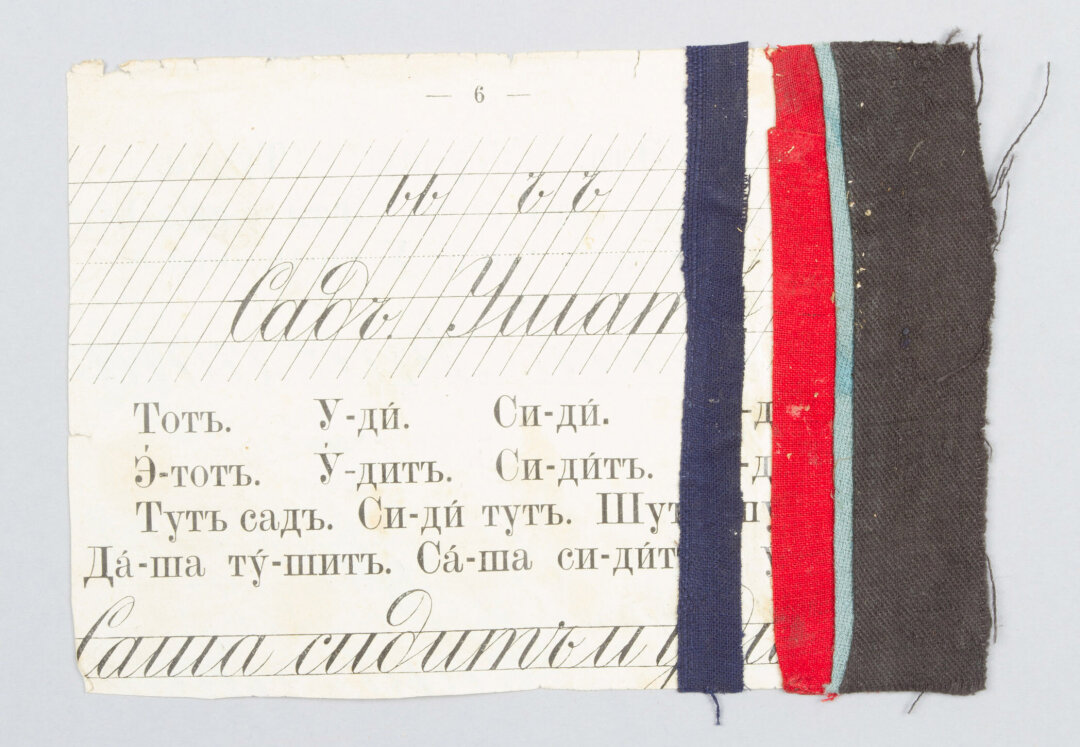 — 6 —
ъ ъ
Садъ.
Тотъ. У-ди́. Си-ди́.
Э́-тотъ. У́-дитъ. Си-ди́тъ.
Тутъ садъ. Си-ди́ тутъ.
Да́-ша ту́-шитъ. Са́-ша
Саша сидитъ и